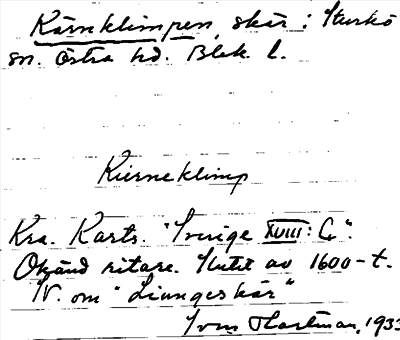 Kärnklimpen, skär i Sturkö
sn. Östra hd. Blek. l.
Kierneklimp
Kra. Kartv. "Sverige XVIII: C".
Okänd ritare. Slutet av 1600-t.
V. om "Liungeskär"
Hartman, 1933